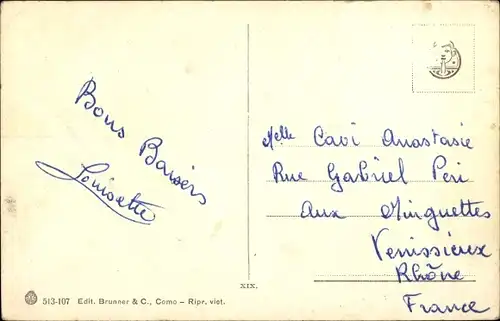 Bons Baisers
Louisette
Melle Cavi Anastasie
Rue Gabriel Peri
Aux Minguettes
Venissieux
Rhône
France
XIX.
513-107 Edit. Brunner & C., Como - Ripr. viet.